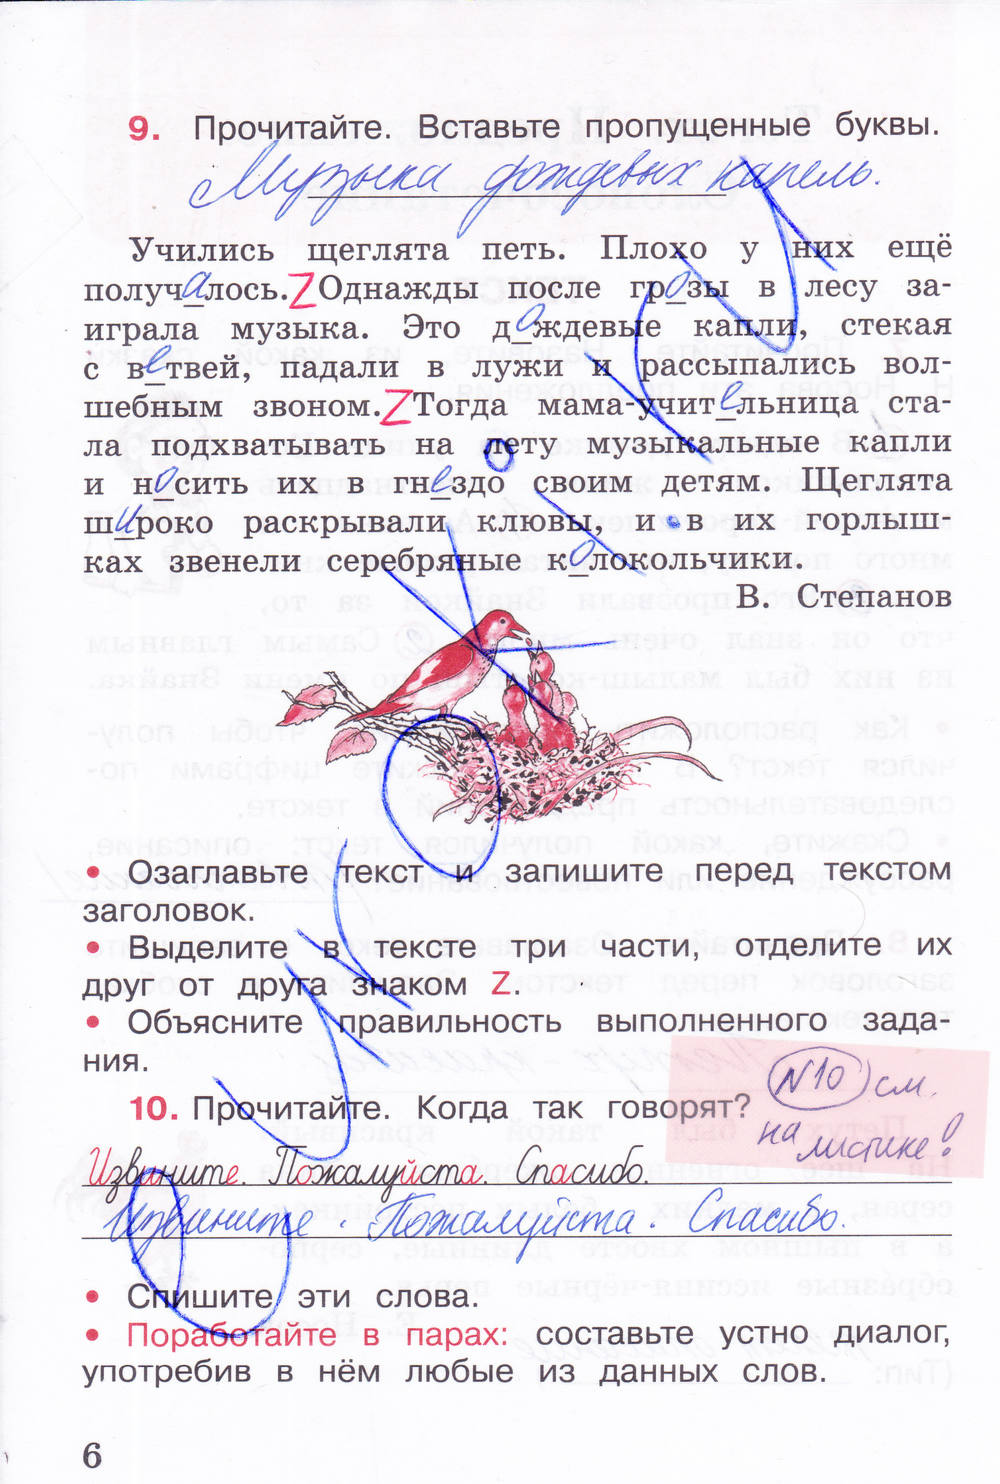 9. Прочитайте. Вставьте пропущенные буквы.
Музыка дождевых капель.
Учились щеглята петь. Плохо у них ещё
получалось. Z Однажды после грозы в лесу за-
играла музыка. Это дождевые капли, стекая
с ветвей, падали в лужи и рассыпались вол-
шебным звоном. Z Тогда мама-учительница ста-
ла подхватывать на лету музыкальные капли
и носить их в гнездо своим детям. Щеглята
широко раскрывали клювы, и в их горлыш-
ках звенели серебряные колокольчики.
В. Степанов
• Озаглавьте текст и запишите перед текстом
заголовок.
• Выделите в тексте три части, отделите их
друг от друга знаком Z.
• Объясните правильность выполненного зада-
ния.
10. Прочитайте. Когда так говорят?
N10 см.
на листике!
Извините. Пожалуйста. Спасибо.
Извините. Пожалуйста. Спасибо.
• Спишите эти слова.
• Поработайте в парах: составьте устно диалог,
употребив в нём любые из данных слов.
6